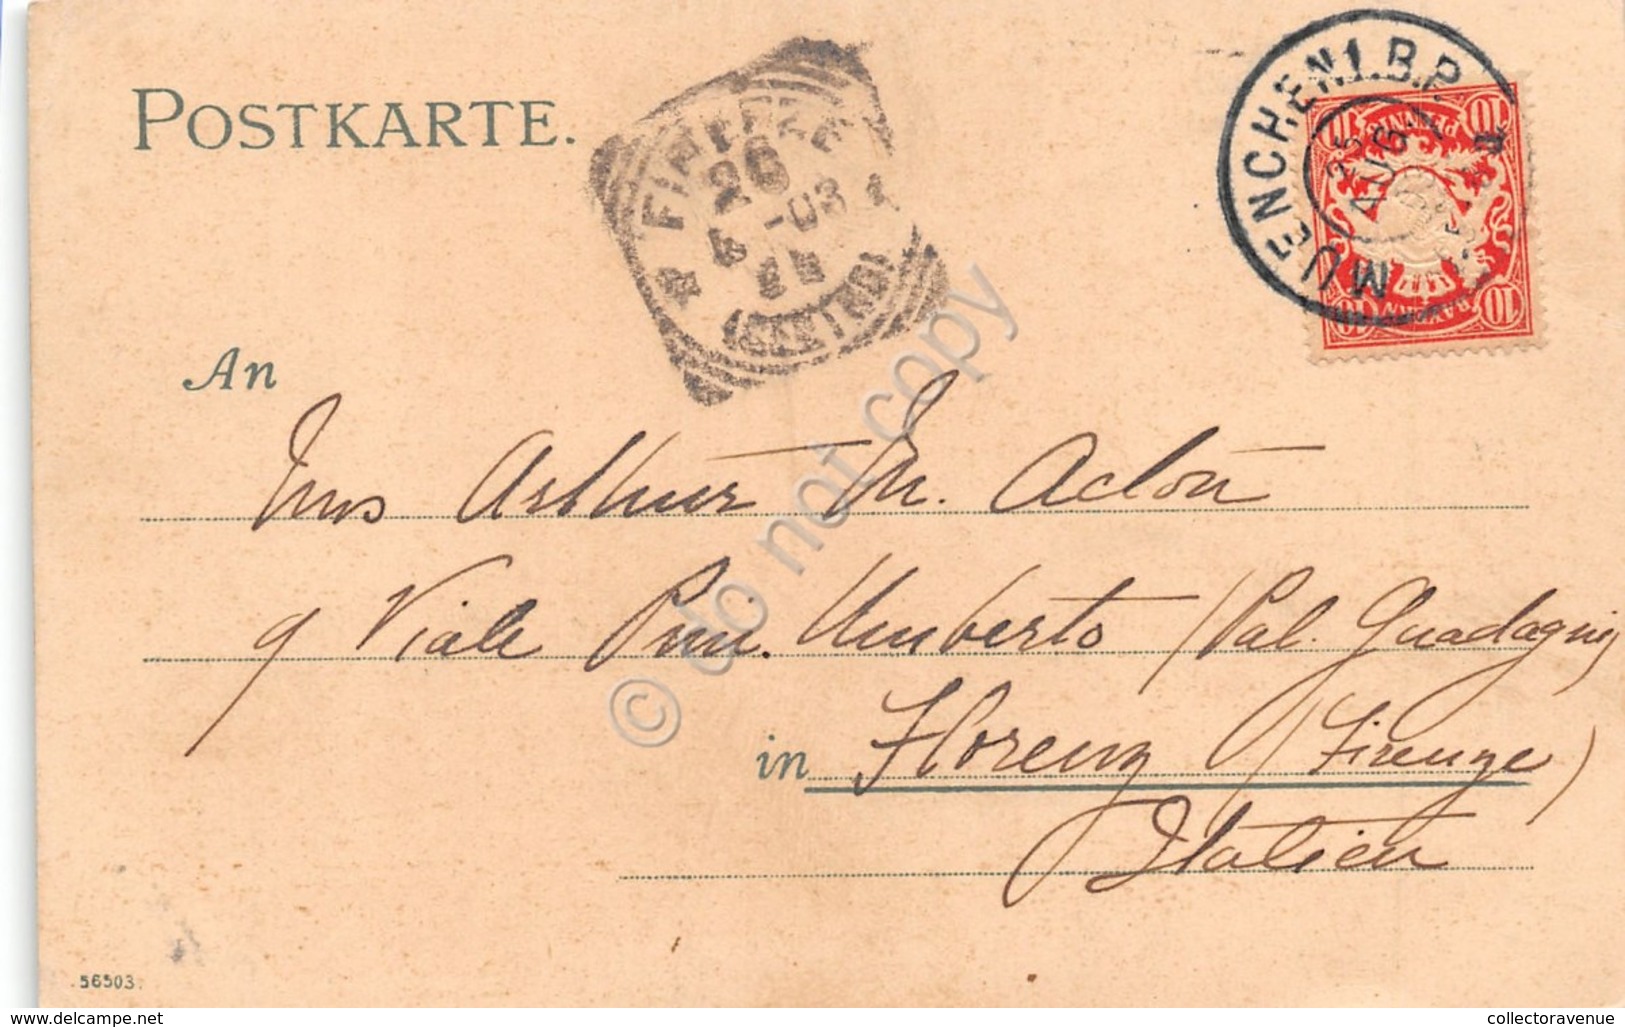 POSTKARTE.
FIRENZE
26
-03
(CENTRO)
MUENCHEN 1. B.P.
25
AUG.
10 PFENNIG 10
10 BAYERN 10
An
Mrs Arthur M. Acton
9 Viale Prin. Umberto (Pal. Guadagni)
in Florenz (Firenze)
Italien
© do not copy
56503
www.delcampe.net
collectoravenue